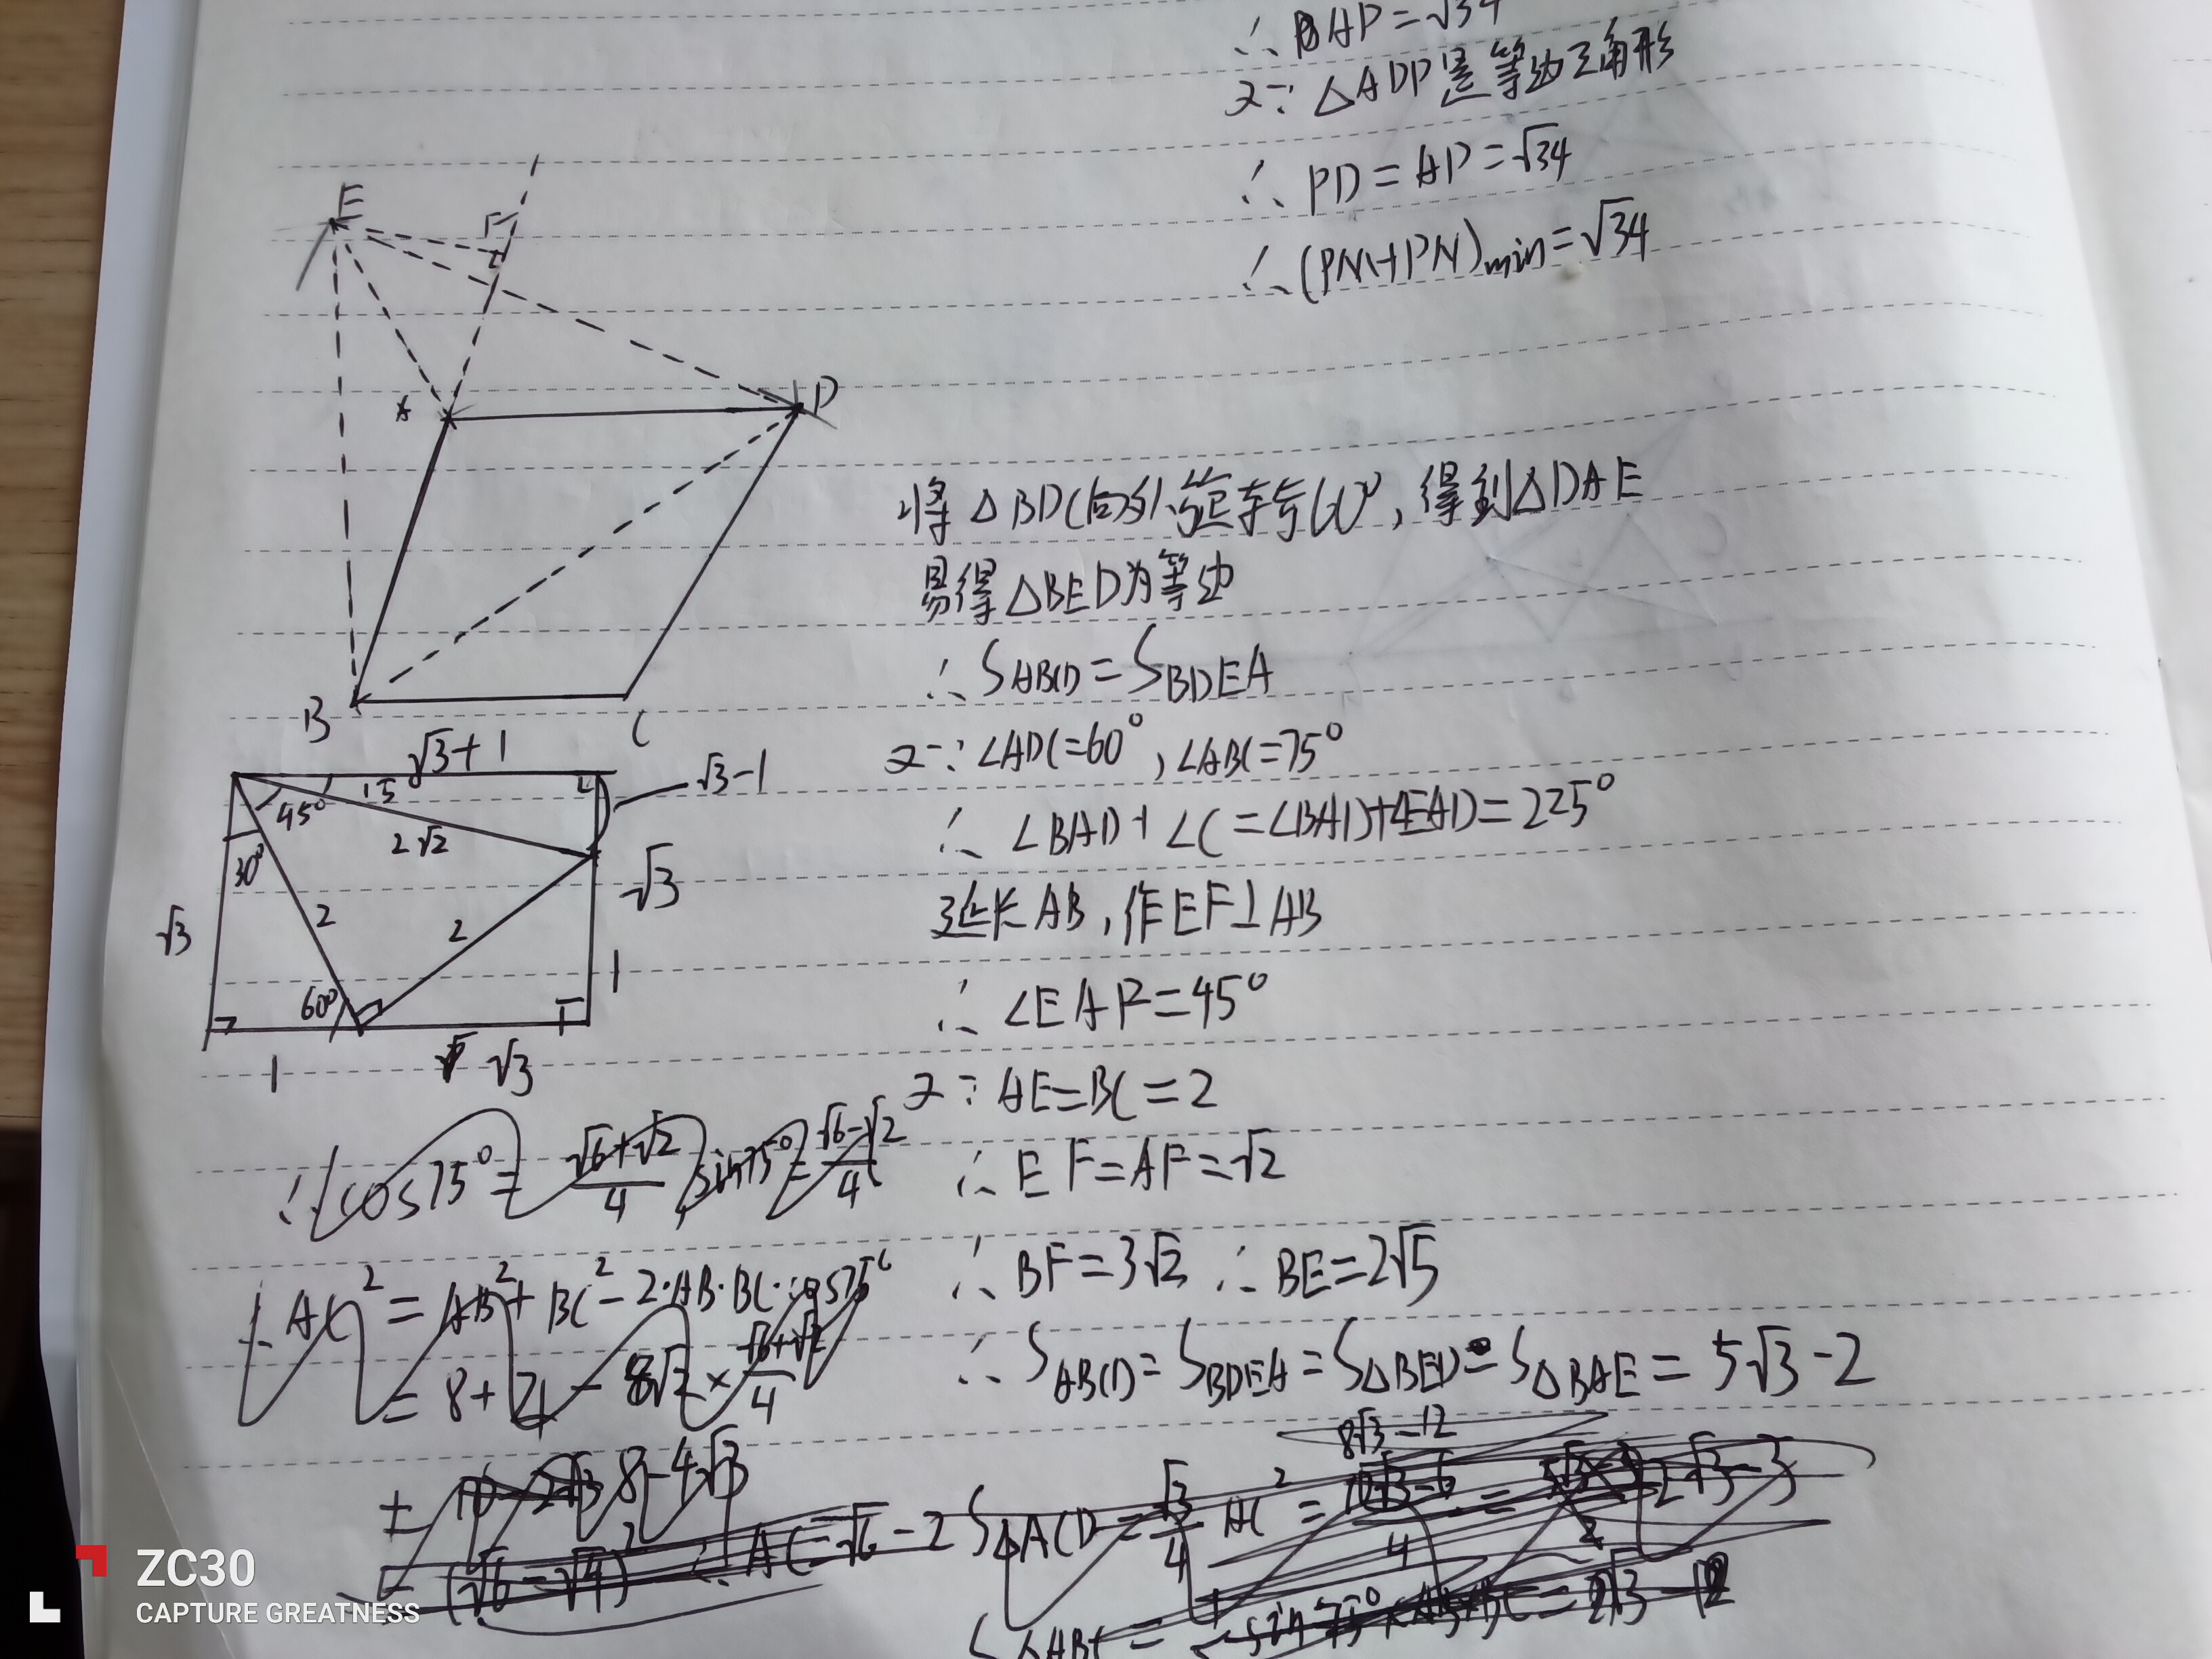 ∴ AP=√34
又∵ △ADP是等边三角形
∴ PD=AP=√34
∴ (PM+PN)min=√34
E
F
A
D
B
C
将△BDC向外旋转60°,得到△DAE
易得△BED为等边
∴ SABCD=SBDEA
又∵ ∠ADC=60°,∠ABC=75°
∴ ∠BAD+∠C=∠BAD+∠EAD=225°
延长AB,作EF⊥AB
∴ ∠EAF=45°
又∵ AE=BC=2
∴ EF=AF=√2
∴ BF=3√2 ∴ BE=2√5
∴ SABCD=SBDEA=S△BED-S△BAE=5√3-2
√3+1
√3-1
45°
15°
2√2
30°
√3
√3
2
2
1
60°
1
√3
∴ cos75°=√6+√2/4, sin75°=√6-√2/4
∴ AC²=AB²+BC²-2·AB·BC·cos75°
=8+4-8√2×√6+√2/4
8-4√3
∴ AC=√6-2
S△ACD=√3/4 AC²=
8√3-12
2√3-3
S△ABC=
ZC30
CAPTURE GREATNESS